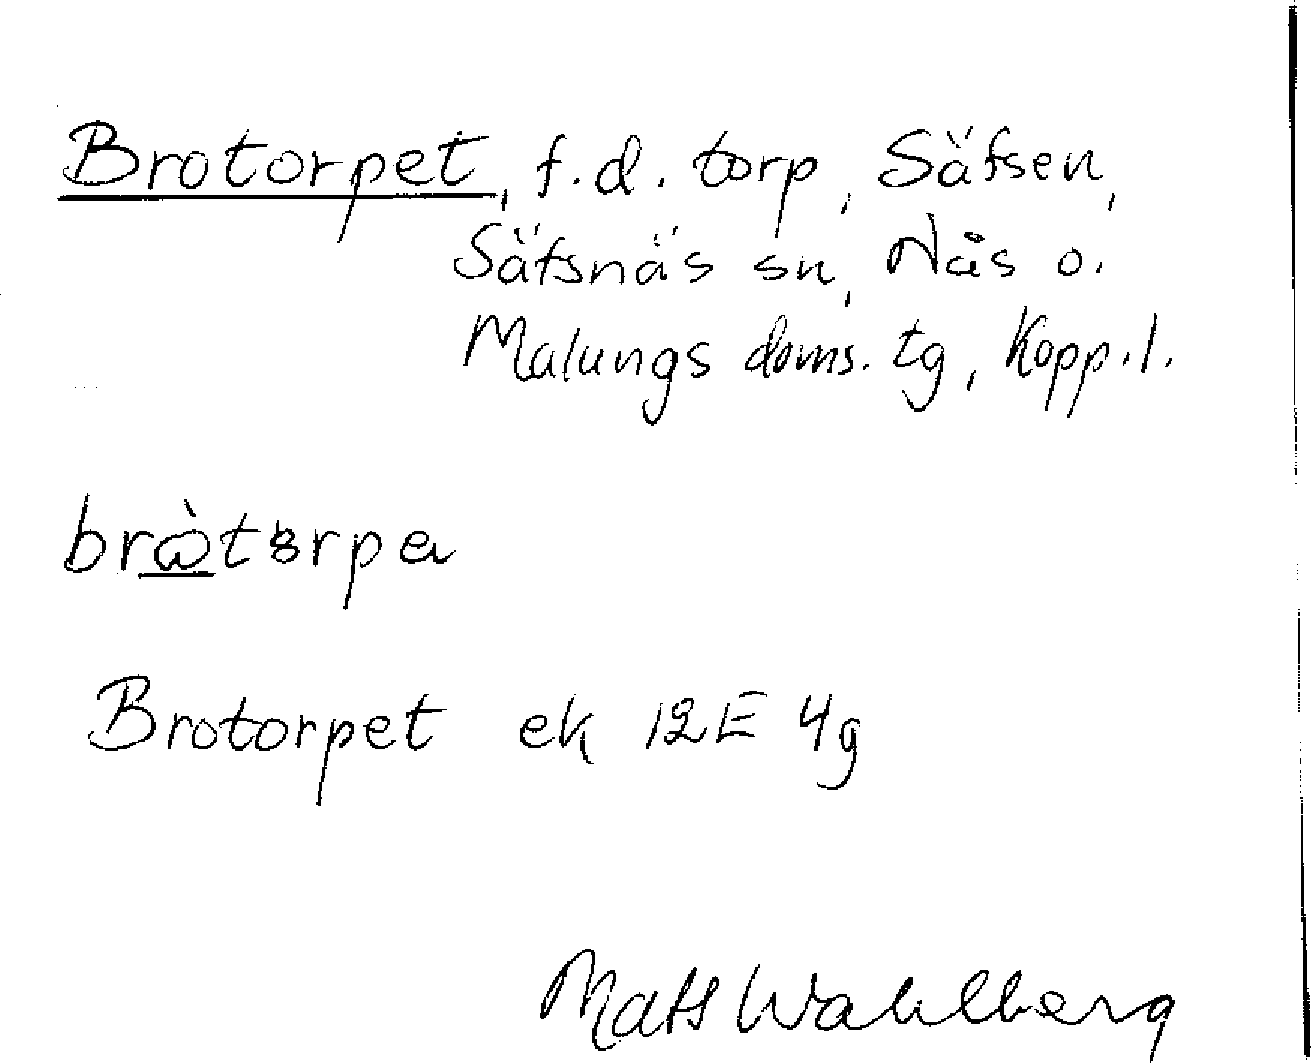 Brotorpet, f.d. torp, Säfsen,
Säfsnäs sn, Nås o.
Malungs doms. tg, Kopp.l.
Brotorpet ek 12E 4g
Mats Wahlberg